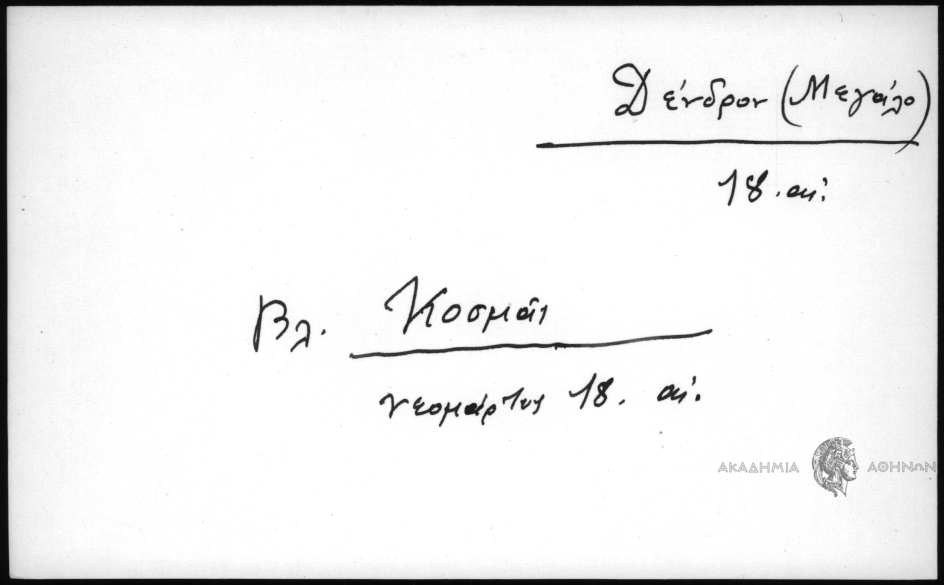 Δένδρον (Μεγάλο)
18. αι.
Βλ. Κοσμᾶς
νεομάρτυς 18. αι.
ΑΚΑΔΗΜΙΑ ΑΘΗΝΩΝ